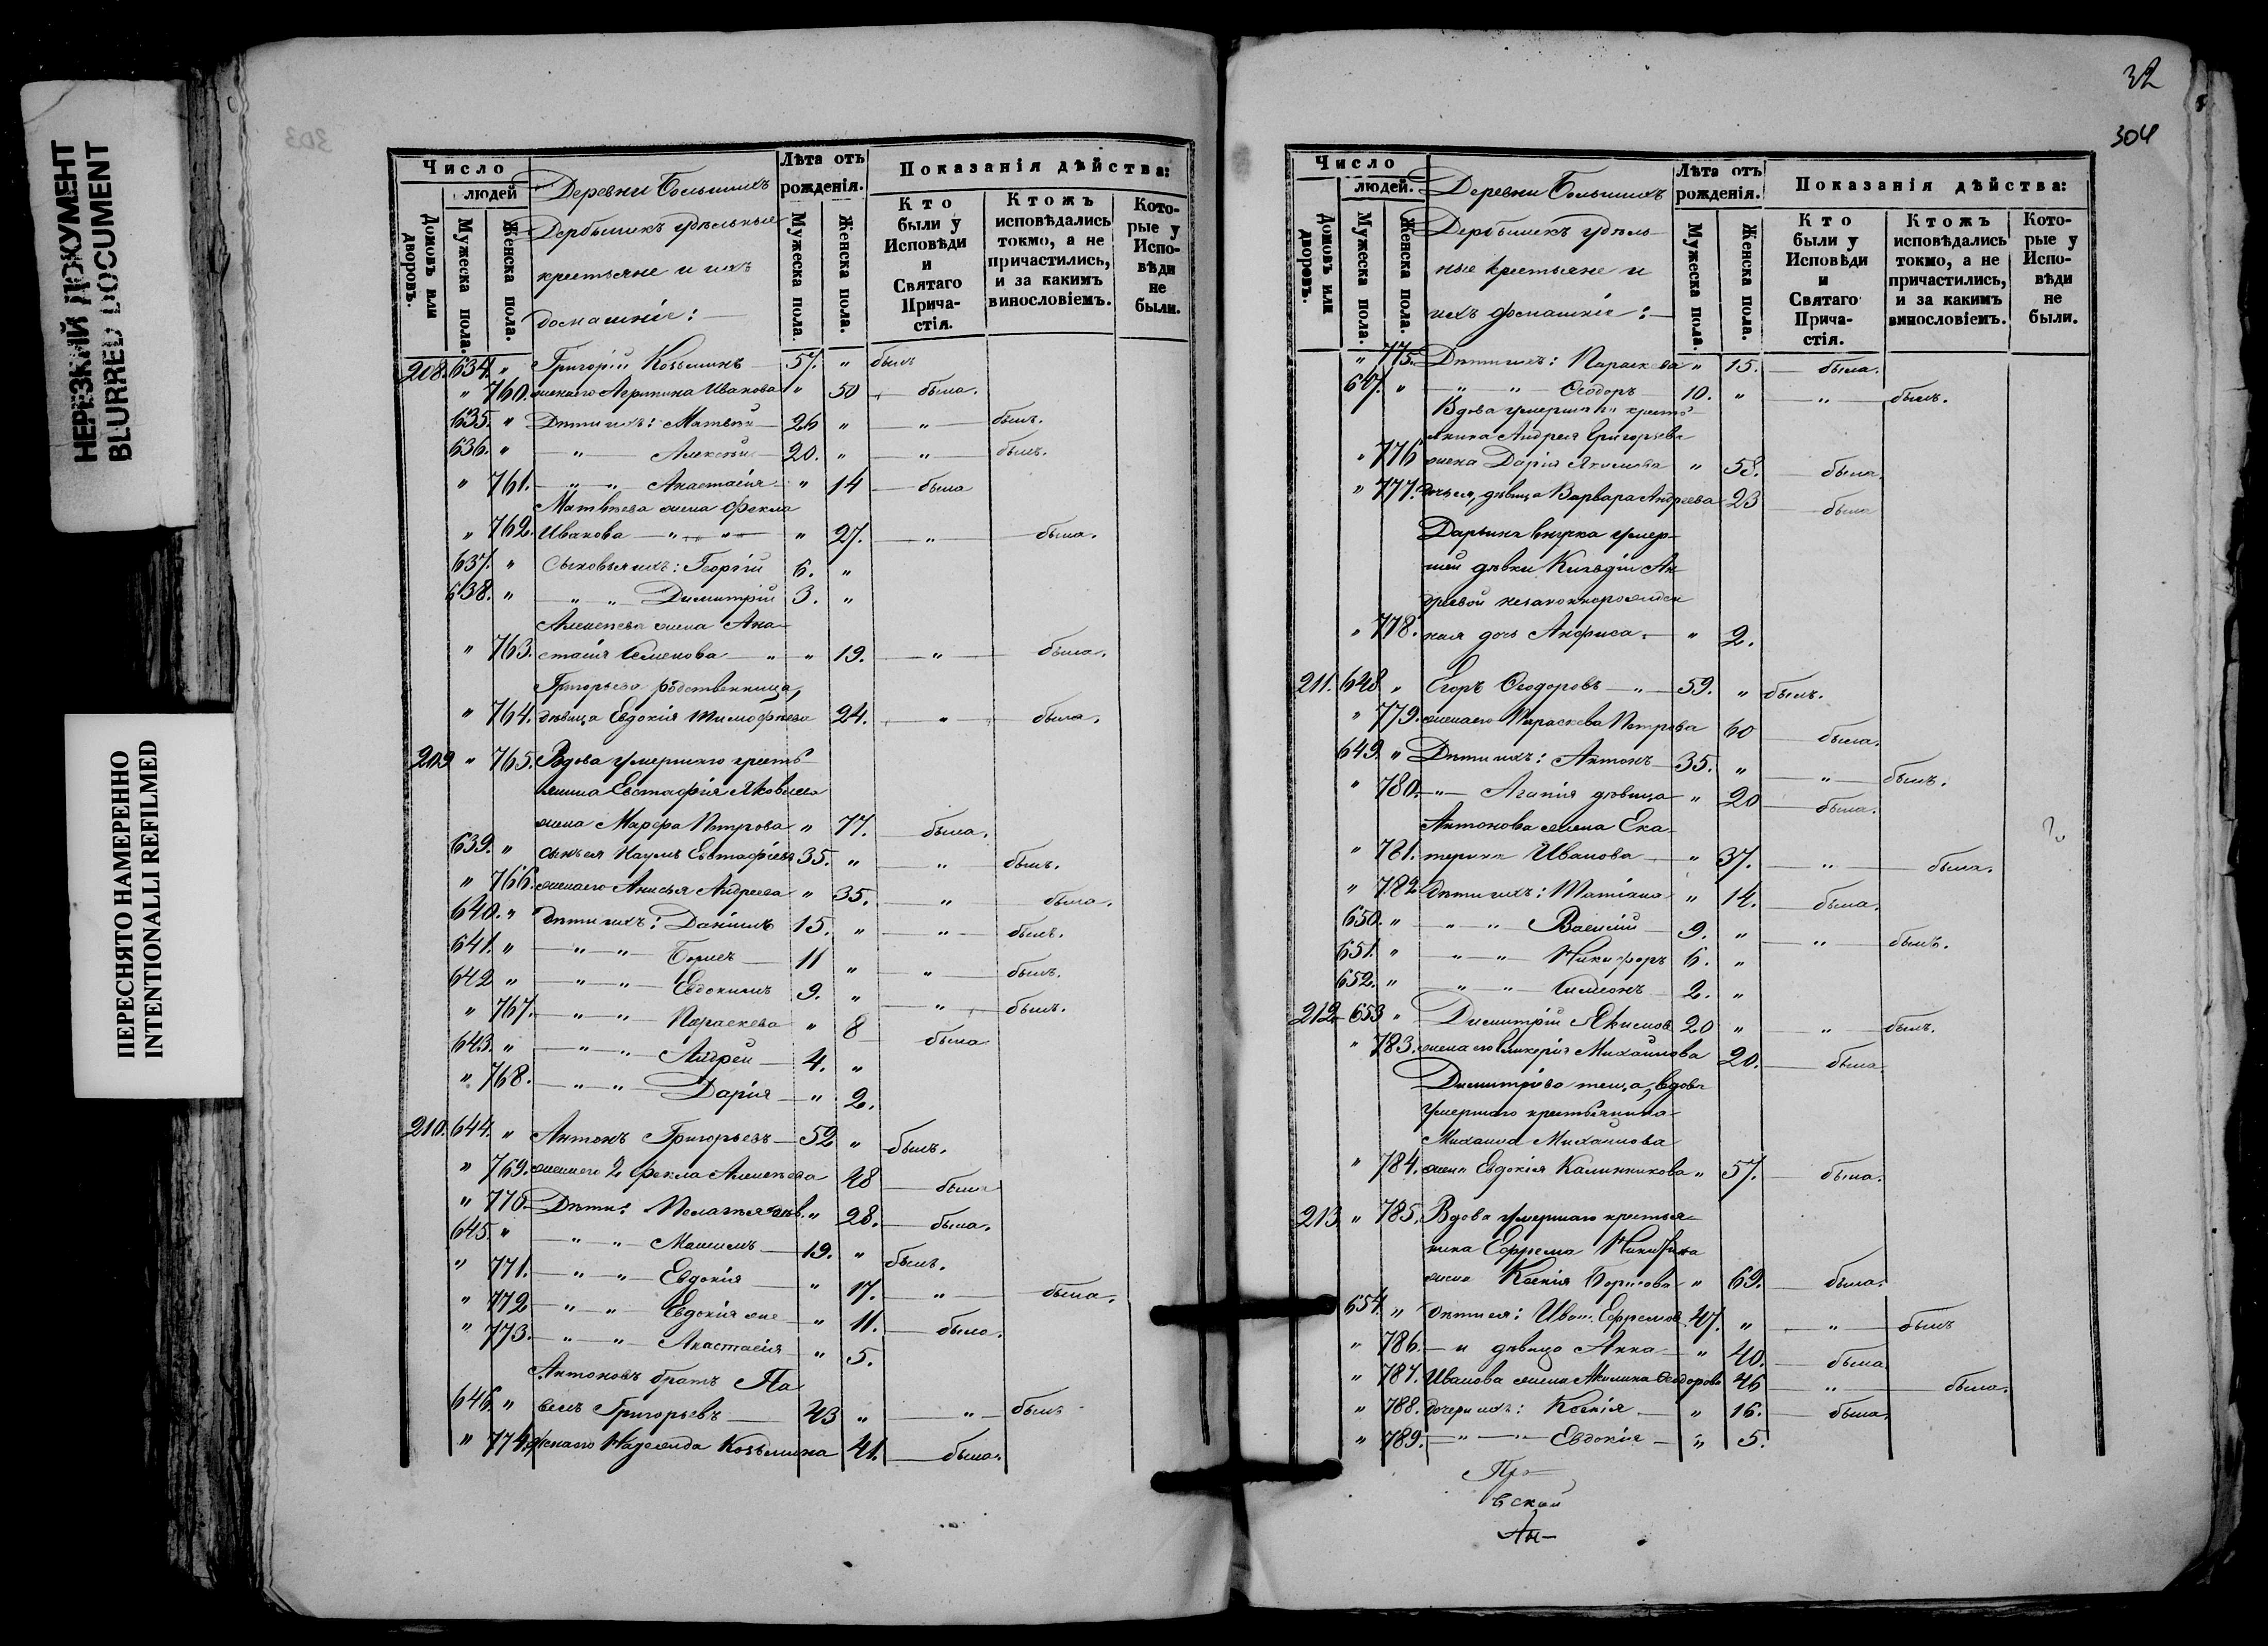 НЕРЕЗКИЙ ДОКУМЕНТ
BLURRED DOCUMENT
ПЕРЕСНЯТО НАМЕРЕННО
INTENTIONALLI REFILMED
303
Число
людей
Домовъ или дворовъ.
Мужеска пола.
Женска пола.
Деревни Большихъ
Дербышекъ удѣльные
крестьяне и ихъ
домашніе: —
Лѣта отъ рожденія.
Мужеска пола
Женска пола.
Показанія дѣйства:
Кто были у Исповѣди и Святаго Прича-стія.
Ктожъ исповѣдались токмо, а не причастились, и за какимъ винословіемъ.
Кото-рые у Испо-вѣди не были.
208. 634. „ Григорій Козьминъ — 57. „ былъ
„ 760. жена его Агрипина Иванова „ 50 „ была.
635. „ Дѣти ихъ: Матвѣй — 26 „ — „ — былъ.
636. „ — „ — Алексѣй — 20. „ — „ — былъ.
„ 761. — „ — „ — Анастасія — „ 14 — была
Матвѣева жена Фекла
„ 762. Иванова — „ — „ — „ 27. — „ — была.
637. „ Сыновья ихъ: Георгій 6. „
638. „ — „ — „ — Димитрій 3. „
Алексѣева жена Ана-
„ 763. стасія Семенова — „ — „ 19. — „ — была.
Григорьева родственница,
„ 764. дѣвица Евдокія Тимофѣева 24. „ была.
209 „ 765. Вдова умершаго кресть-
янина Евстафія Яковлева
жена Марфа Петрова „ 77. — была.
639. „ сынъ ея Наумъ Евстафіевъ 35. „ — „ — былъ.
„ 766. жена его Анисья Андреева „ 35. — „ — была.
640. „ дѣти ихъ: Даніилъ 15. „ — „ — былъ.
641. „ — „ — „ — Борисъ — 11 „ „ былъ.
642 „ — „ — „ — Евдокимъ 9. „ „ былъ.
„ 767. — „ — „ — Параскева „ 8 была
643. „ — „ — „ — Андрей — 4. „
„ 768. — „ — „ — Дарія — „ 2.
210. 644. „ Антонъ Григорьевъ — 52 „ былъ.
„ 769. жена его 2 Фекла Алексѣева 48 — была
„ 770. Дѣти: Пелагѣя дѣв. „ 28. — была.
645. „ — „ — „ — Максимъ — 19. „ былъ.
„ 771. — „ — „ — Евдокія — „ 17. — „ — была.
„ 772 — „ — „ — Евдокія же — „ 11. — была.
„ 773. — „ — „ — Анастасія — „ 5.
Антоновъ братъ Па
646. „ велъ Григорьевъ — 43 „ — „ — былъ
„ 774. жена его Надежда Козьмина 41. — была.
32
304
Число
людей.
Домовъ или дворовъ.
Мужеска пола.
Женска пола.
Деревни Большихъ
Дербышекъ удѣль-
ные крестьяне и
ихъ домашніе: —
Лѣта отъ рожденія.
Мужеска пола.
Женска пола.
Показанія дѣйства:
Кто были у Исповѣди и Святаго Прича-стія.
Ктожъ исповѣдались токмо, а не причастились, и за какимъ винословіемъ.
Кото-рые у Испо-вѣди не были.
„ 775. Дѣти ихъ: Параскева „ 15. — была.
647. „ — „ — „ — Ѳеодоръ — 10. „ — „ — былъ.
Вдова умершаго кресть-
янина Андрея Григорьева
„ 776 жена Дарія Якимова „ 58. — была.
„ 777. дочь ея, дѣвица Варвара Андреева 23 — была
Дарьина внучка умер-
шей дѣвки Ан-
дреевой незаконнорожден
„ 778. ная дочь Анфиса. — „ 2.
211. 648 „ Егоръ Ѳеодоровъ — „ — 59. „ былъ.
„ 779. жена его Параскева Петрова 60 — была.
649. „ Дѣти ихъ: Антонъ — 35. „ — „ — былъ.
„ 780. — „ — Агапія дѣвица — „ 20 — была.
Антонова жена Ека-
„ 781. терина Иванова — „ 37. — „ — была.
„ 782. дѣти ихъ: Татіана „ 14. — была.
650. „ — „ — „ — Василій — 9. „ — „ — былъ.
651. „ — „ — „ — Никифоръ 6. „
652. „ — „ — „ — Симеонъ — 2. „
212. 653 „ Димитрій Якимов 20 „ — „ — былъ.
„ 783. жена его Гликерія Михайлова 20. — была
Димитріева теща, вдова
умершаго крестьянина
Михаила Михайлова
„ 784. жена Евдокія Калинникова „ 57. — была.
213. „ 785. Вдова умершаго крестья-
нина Ефрема Никитина
жена Ксенія Борисова „ 69. — была.
654. „ дѣти ея: Иван. Ефремов. 47. „ — „ — былъ
„ 786. — и дѣвица Анна — „ 40. — была
„ 787. Иванова жена Акилина Ѳеодорова 46 — „ — была.
„ 788. дочери ихъ: Ксенія — „ 16. — была.
„ 789. — „ — „ — Евдокія — „ 5.
вской